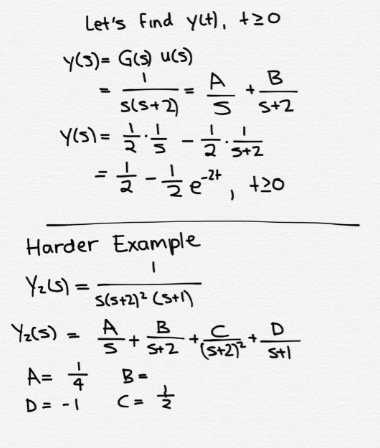 Let's find y(t), t≥0
y(s)= G(s) u(s)
= 1/(s(s+2)) = A/s + B/(s+2)
Y(s)= 1/2 · 1/s - 1/2 · 1/(s+2)
= 1/2 - 1/2 e^(-2t), t≥0
Harder Example
Y₂(s) = 1/(s(s+2)²(s+1))
Y₂(s) = A/s + B/(s+2) + C/(s+2)² + D/(s+1)
A= 1/4 B=
D = -1 C= 1/2